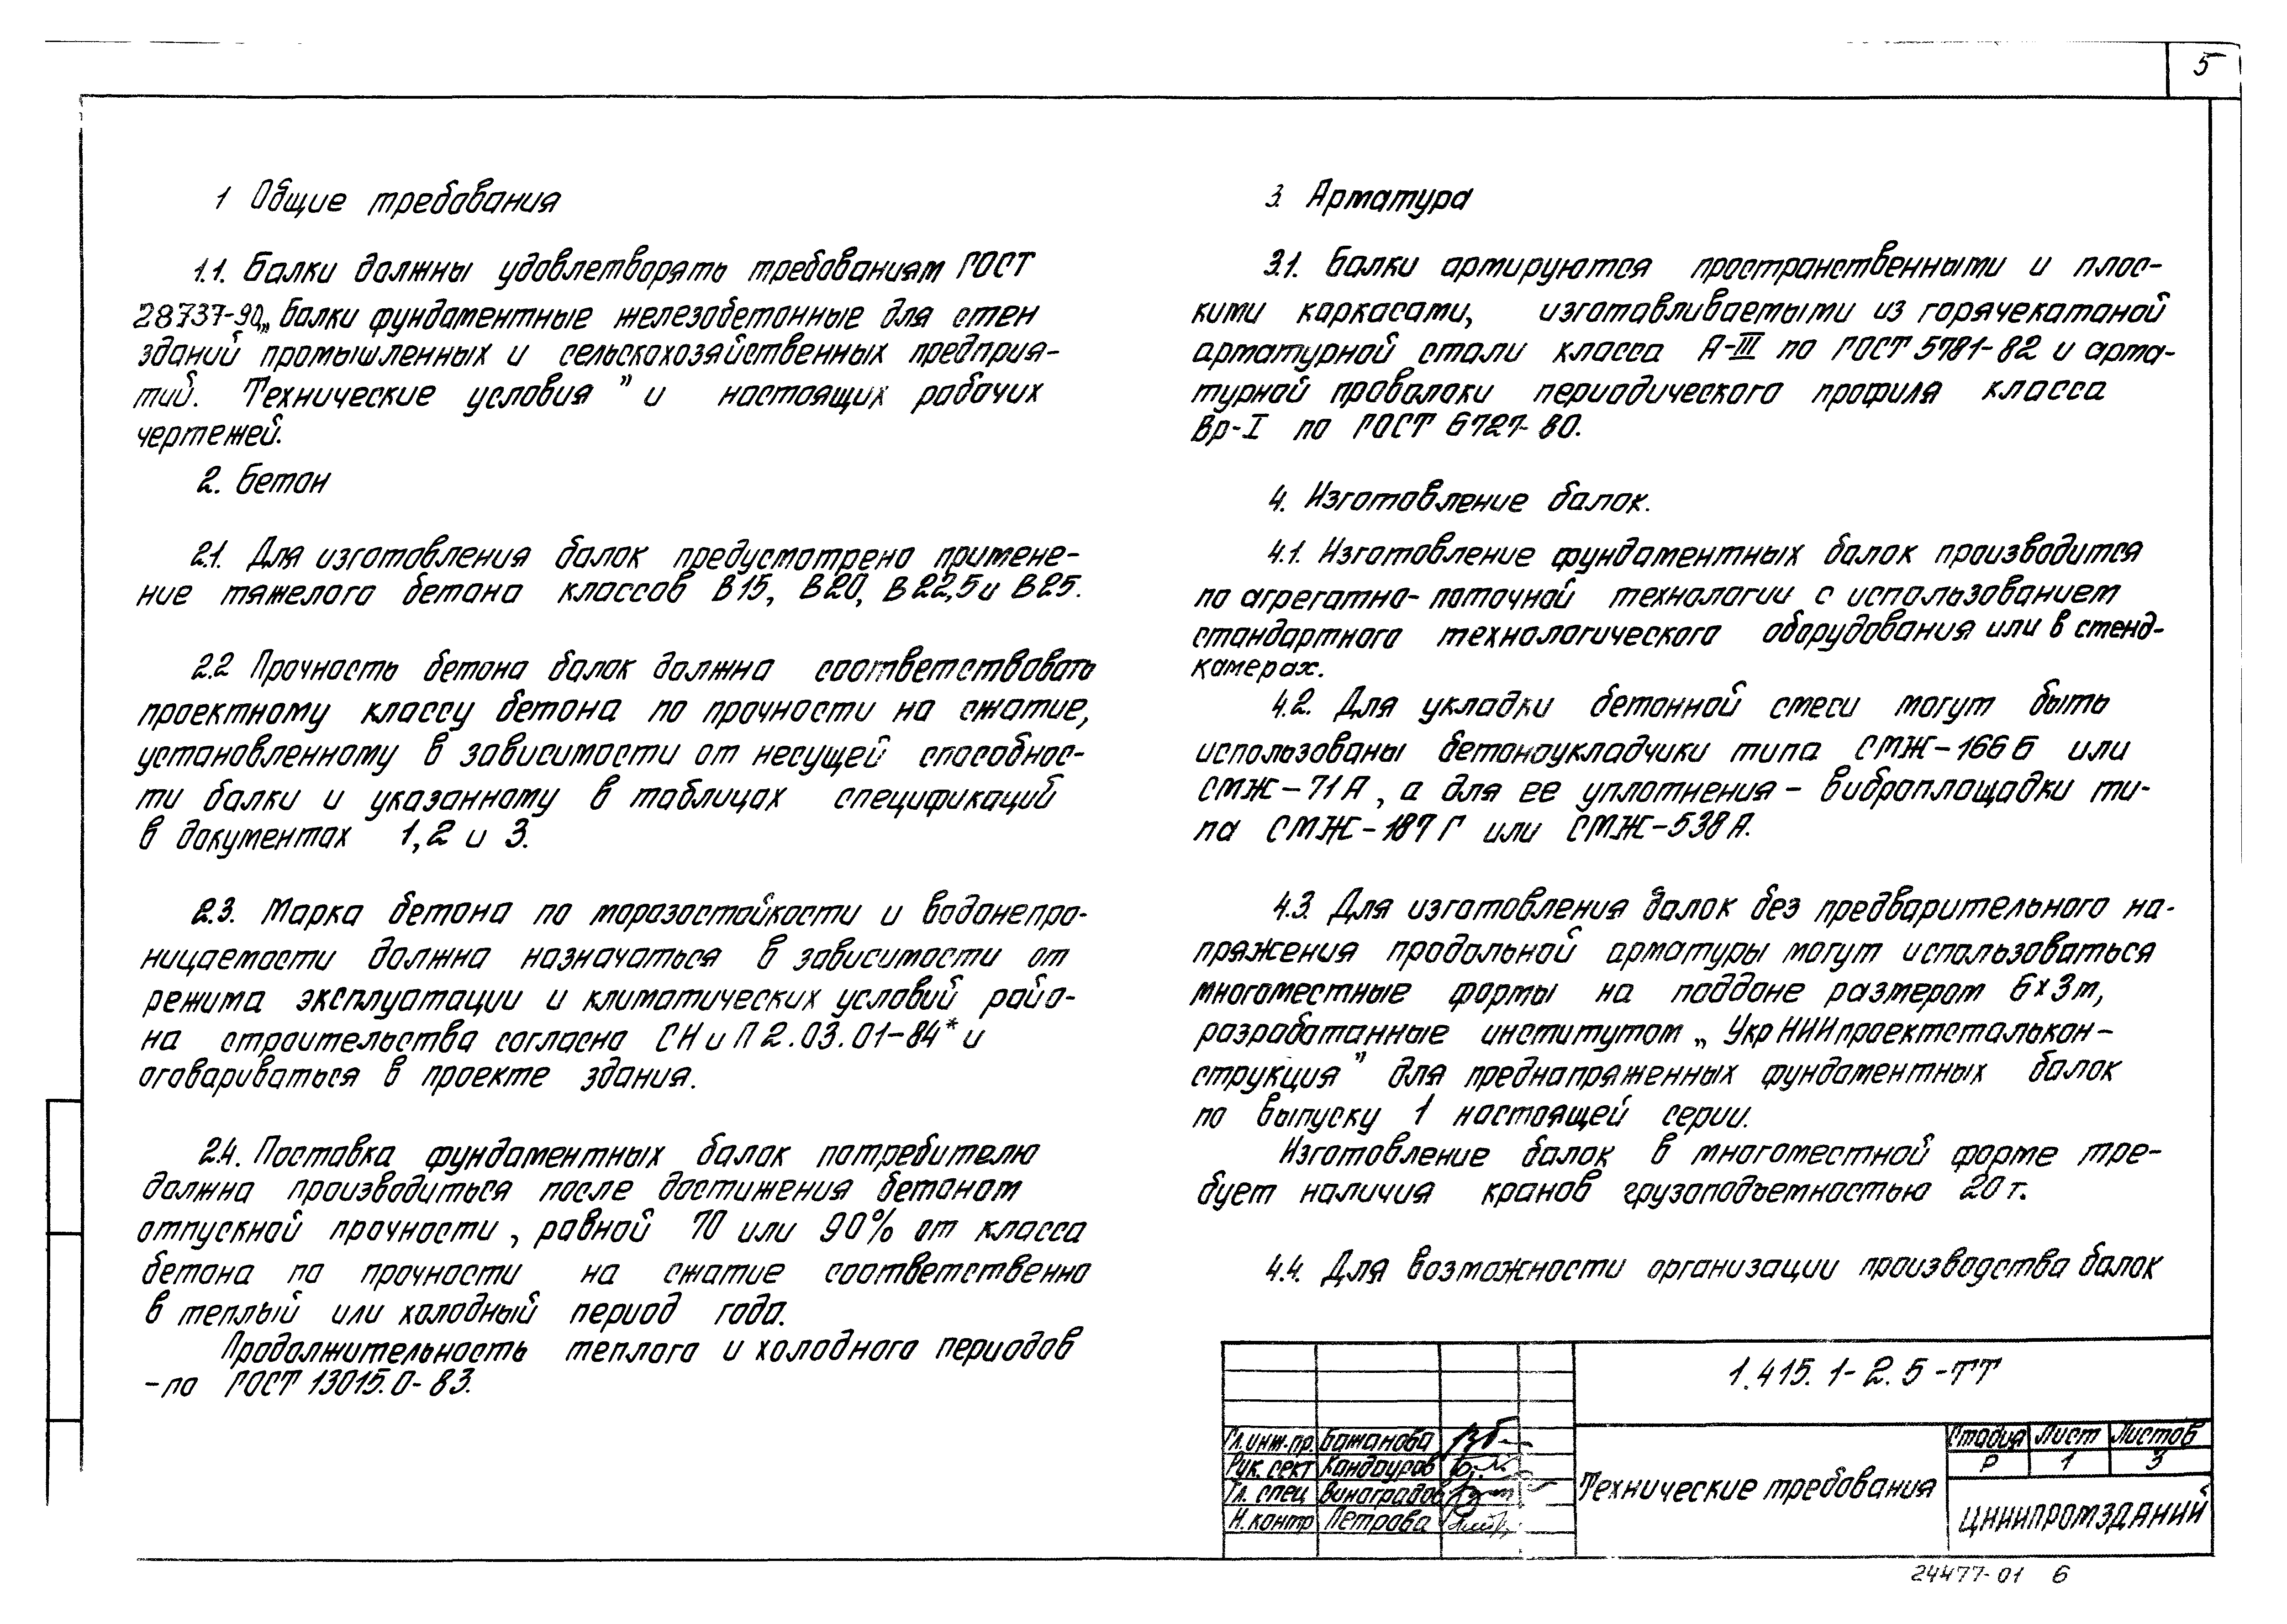 5
1 Общие требования
1.1. Балки должны удовлетворять требованиям ГОСТ
28737-90 „Балки фундаментные железобетонные для стен
зданий промышленных и сельскохозяйственных предприя-
тий. Технические условия" и настоящих рабочих
чертежей.
2. Бетон
2.1. Для изготовления балок предусмотрено примене-
ние тяжелого бетона классов В15, В20, В22,5 и В25.
2.2 Прочность бетона балок должна соответствовать
проектному классу бетона по прочности на сжатие,
установленному в зависимости от несущей способнос-
ти балки и указанному в таблицах спецификаций
в документах 1,2 и 3.
2.3. Марка бетона по морозостойкости и водонепро-
ницаемости должна назначаться в зависимости от
режима эксплуатации и климатических условий райо-
на строительства согласно СНиП 2.03.01-84* и
оговариваться в проекте здания.
2.4. Поставка фундаментных балок потребителю
должна производиться после достижения бетоном
отпускной прочности, равной 70 или 90% от класса
бетона по прочности на сжатие соответственно
в теплый или холодный период года.
Продолжительность теплого и холодного периодов
- по ГОСТ 13015.0-83.
3. Арматура
3.1. Балки армируются пространственными и плос-
кими каркасами, изготавливаемыми из горячекатаной
арматурной стали класса А-III по ГОСТ 5781-82 и арма-
турной проволоки периодического профиля класса
Вр-I по ГОСТ 6727-80.
4. Изготовление балок.
4.1. Изготовление фундаментных балок производится
по агрегатно-поточной технологии с использованием
стандартного технологического оборудования или в стенд-
камерах.
4.2. Для укладки бетонной смеси могут быть
использованы бетоноукладчики типа СМЖ-166Б или
СМЖ-71А, а для ее уплотнения - виброплощадки ти-
па СМЖ-187Г или СМЖ-538А.
4.3. Для изготовления балок без предварительного на-
пряжения продольной арматуры могут использоваться
многоместные формы на поддоне размером 6х3м,
разработанные институтом „УкрНИИпроектсталькон-
струкция" для преднапряженных фундаментных балок
по выпуску 1 настоящей серии.
Изготовление балок в многоместной форме тре-
бует наличия кранов грузоподъемностью 20т.
4.4. Для возможности организации производства балок
1.415.1-2.5-ТТ
Гл. инж. пр. Бажанова
Рук. сект Кандауров
Гл. спец Виноградов
Н. контр Петрова
Технические требования
Стадия Лист Листов
Р 1 3
ЦНИИПРОМЗДАНИЙ
24477-01 6